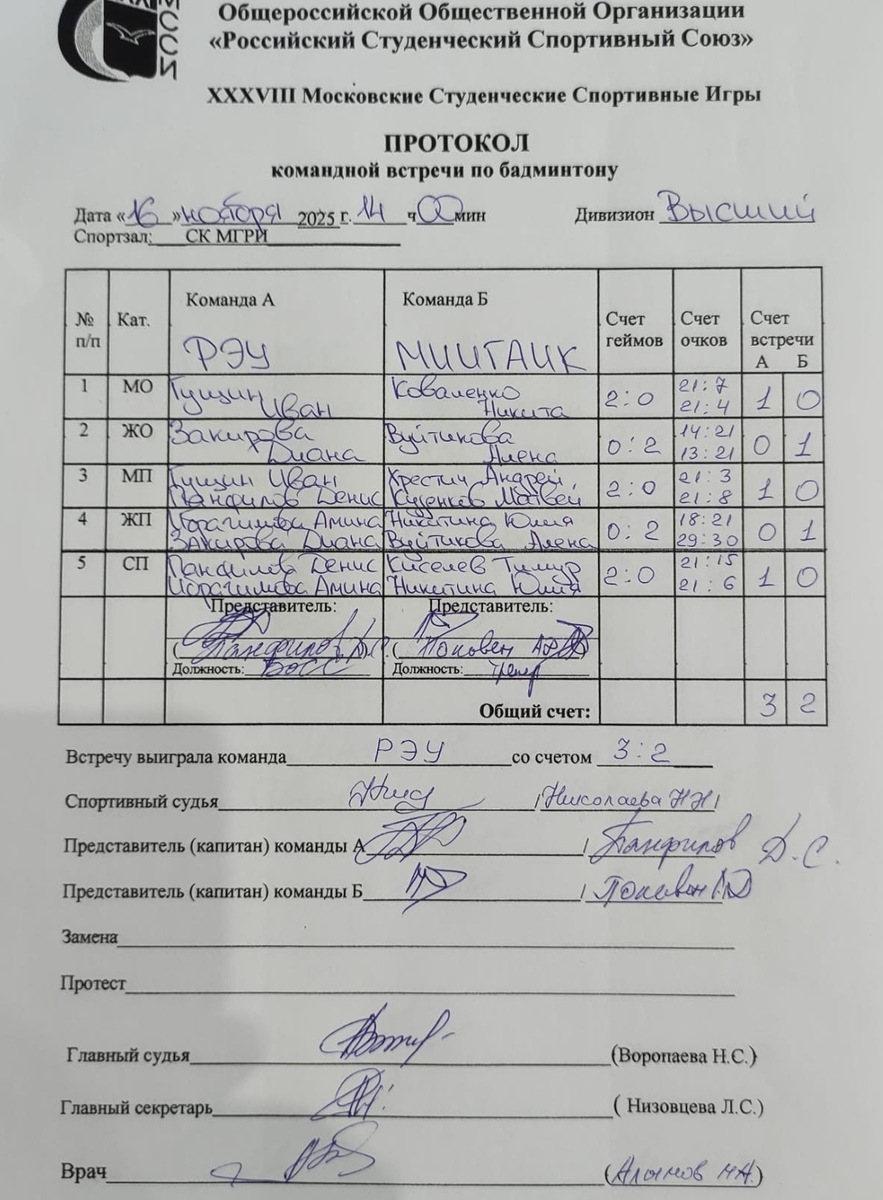 МССИ
Общероссийской Общественной Организации
«Российский Студенческий Спортивный Союз»
XXXVIII Московские Студенческие Спортивные Игры
ПРОТОКОЛ
командной встречи по бадминтону
Дата «16» ноября 2025 г. 14 ч 00 мин Дивизион Высший
Спортзал: СК МГРИ
№ п/п Кат. Команда А РЭУ Команда Б МИИГАИК Счет геймов Счет очков Счет встречи А Б
1 МО Гущин Иван Коваленко Никита 2:0 21:7 21:4 1 0
2 ЖО Закирова Диана Вуйтикова Алена 0:2 14:21 13:21 0 1
3 МП Гущин Иван Панфилов Денис Хрестич Андрей, Куденков Матвей 2:0 21:3 21:8 1 0
4 ЖП Ибрагимова Амина Закирова Диана Никитина Юлия Вуйтикова Алена 0:2 18:21 29:30 0 1
5 СП Панфилов Денис Ибрагимова Амина Киселев Тимур Никитина Юлия 2:0 21:15 21:6 1 0
Представитель: Представитель:
(Панфилов Д.С. (
Должность: Босс Должность: тренер
Общий счет: 3 2
Встречу выиграла команда РЭУ со счетом 3:2
Спортивный судья /Николаева НН/
Представитель (капитан) команды А / Панфилов Д.С.
Представитель (капитан) команды Б /
Замена
Протест
Главный судья (Воропаева Н.С.)
Главный секретарь ( Низовцева Л.С.)
Врач (Алымов НА.)